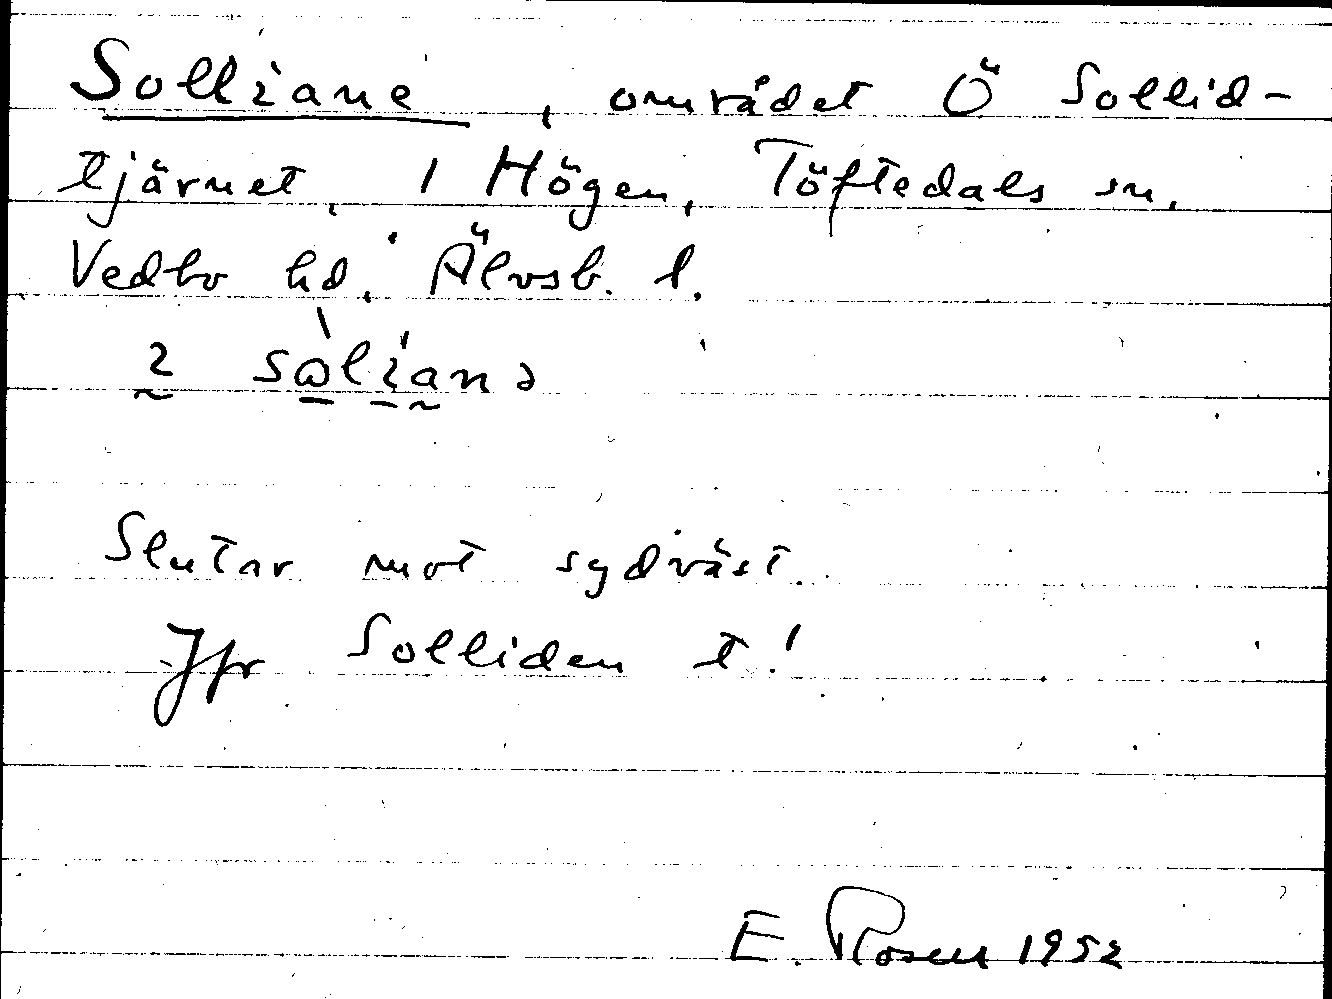 Solliane, området Ö Sollid-
tjärnet, 1 Högen, Töftedals sn,
Vedbo hd, Älvsb. l.
2 sὼlianə
Slutar mot sydväst.
Jfr Solliden t.!
E. Rosen 1952